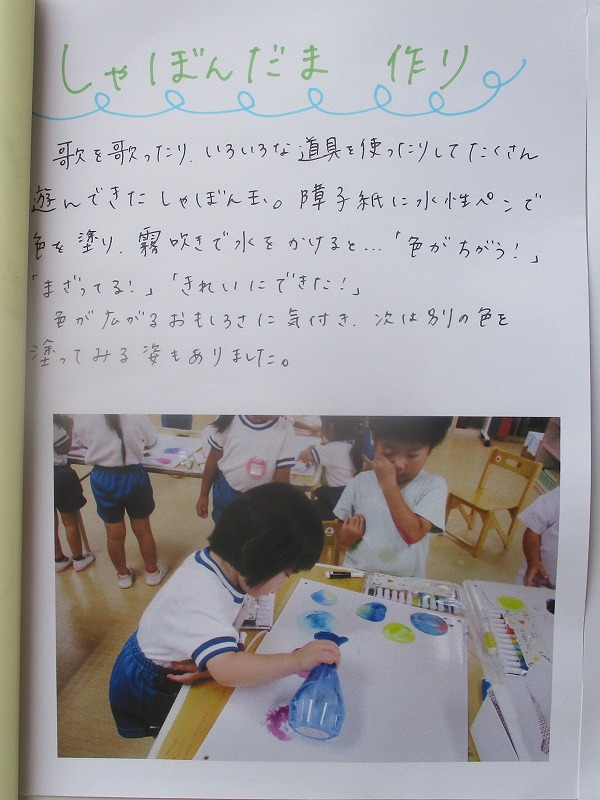 しゃぼんだま 作り
歌を歌ったり、いろいろな道具を使ったりしてたくさん
遊んできたしゃぼん玉。障子紙に水性ペンで
色を塗り、霧吹きで水をかけると…「色がちがう！」
「まざってる！」「きれいにできた！」
色が広がるおもしろさに気付き、次は別の色を
塗ってみる姿もありました。